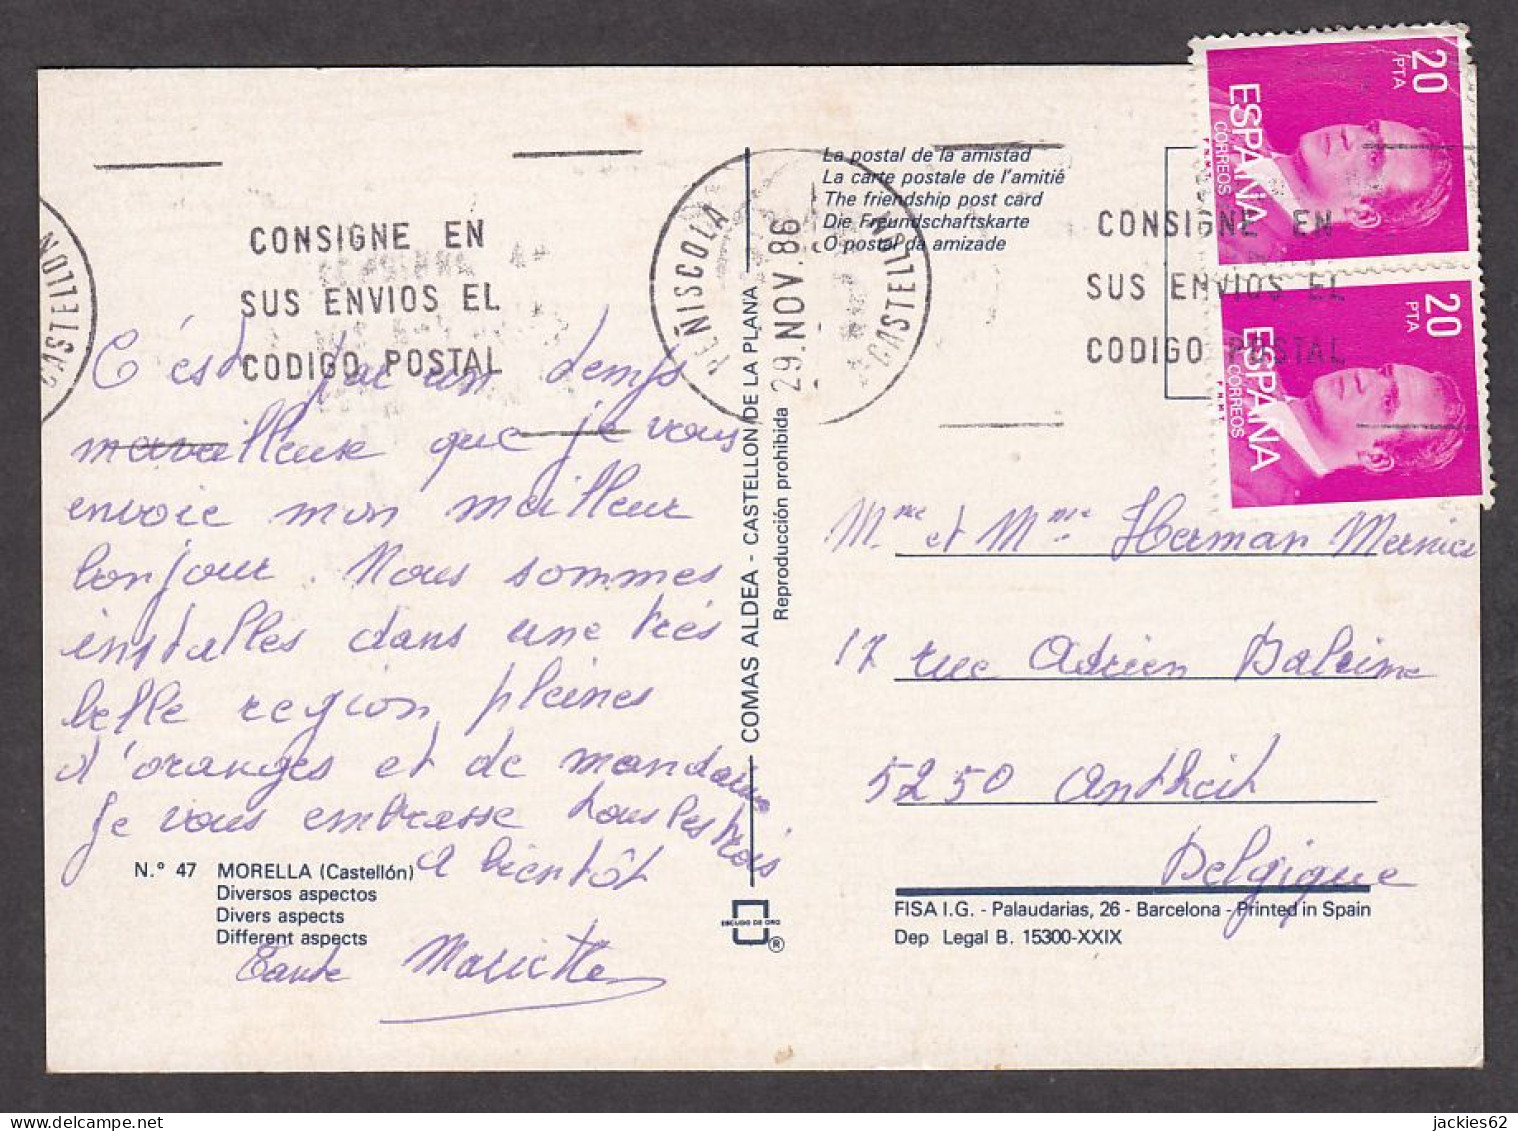 CONSIGNE EN
SUS ENVIOS EL
CODIGO POSTAL
CASTELLON
PEÑISCOLA
29.NOV.86
CASTELLON
CONSIGNE EN
SUS ENVIOS EL
CODIGO POSTAL
La postal de la amistad
La carte postale de l'amitié
The friendship post card
Die Freundschaftskarte
O postal da amizade
20 PTA
ESPAÑA
CORREOS
F.N.M.T.
20 PTA
ESPAÑA
CORREOS
F.N.M.T.
C'est par un temps
merveilleux que je vous
envoie mon meilleur
bonjour. Nous sommes
installes dans une très
belle region, pleines
d'oranges et de mandarine
Je vous embrasse tous les trois
A bientôt
Tante Mariette
COMAS ALDEA - CASTELLON DE LA PLANA
Reproducción prohibida
Mme et Mme Herman
17 rue Adrien
5250 Antheit
Belgique
N.° 47 MORELLA (Castellón)
Diversos aspectos
Divers aspects
Different aspects
ESCUDO DE ORO
®
FISA I.G. - Palaudarias, 26 - Barcelona - Printed in Spain
Dep Legal B. 15300-XXIX
jackies62